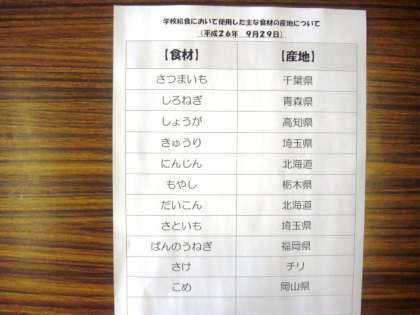 学校給食において使用した主な食材の産地について
（平成２６年　９月２９日）
【食材】　【産地】
さつまいも　千葉県
しろねぎ　青森県
しょうが　高知県
きゅうり　埼玉県
にんじん　北海道
もやし　栃木県
だいこん　北海道
さといも　埼玉県
ばんのうねぎ　福岡県
さけ　チリ
こめ　岡山県